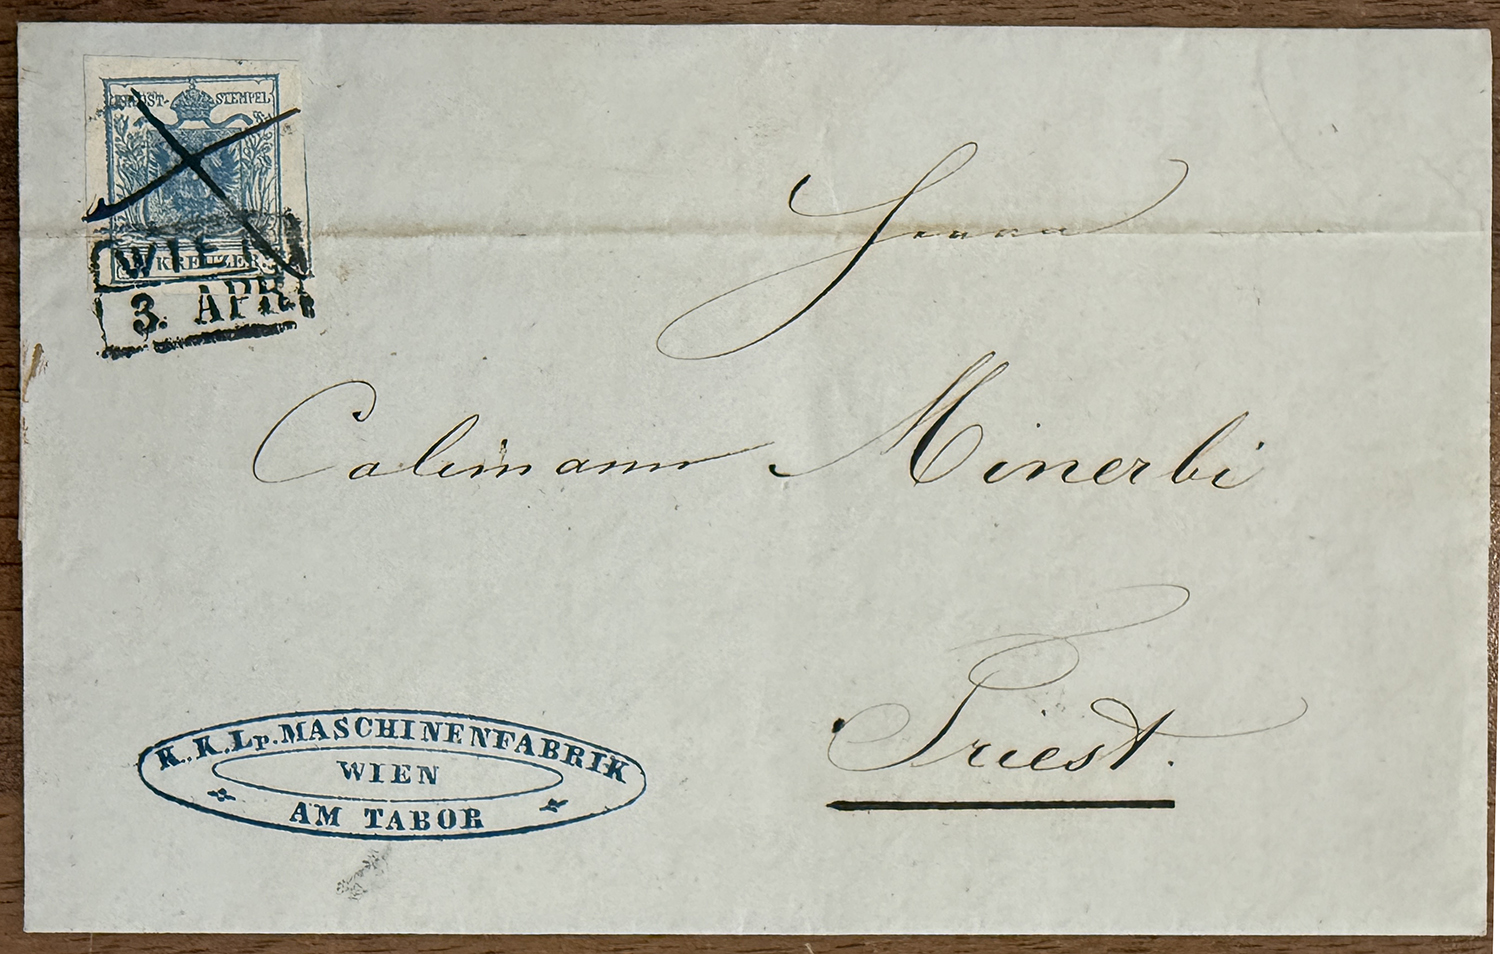 K.K.POST-STEMPEL
KREUZER
WIEN
3. APR
Herrn
Calimann Minerbi
Triest.
K. K. Lp. MASCHINENFABRIK
WIEN
AM TABOR